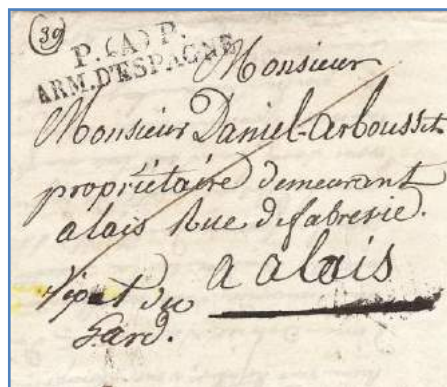 39
P.(A)P.
ARM.D'ESPAGNE
Monsieur
Monsieur Daniel-Arbousset
propriétaire demeurant
alais Rue defabrerie.
a alais
Dépt du
Gard.